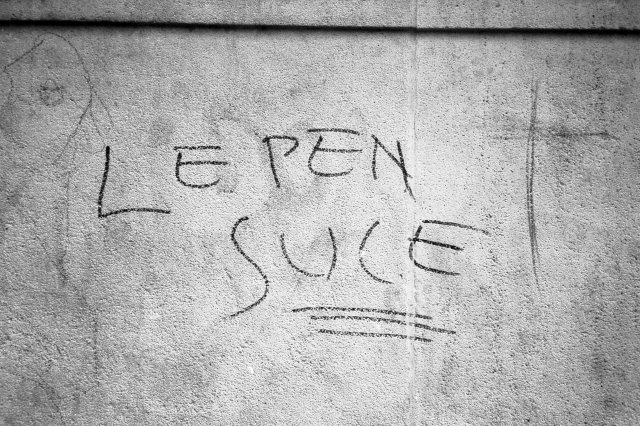 LE PEN
SUCE